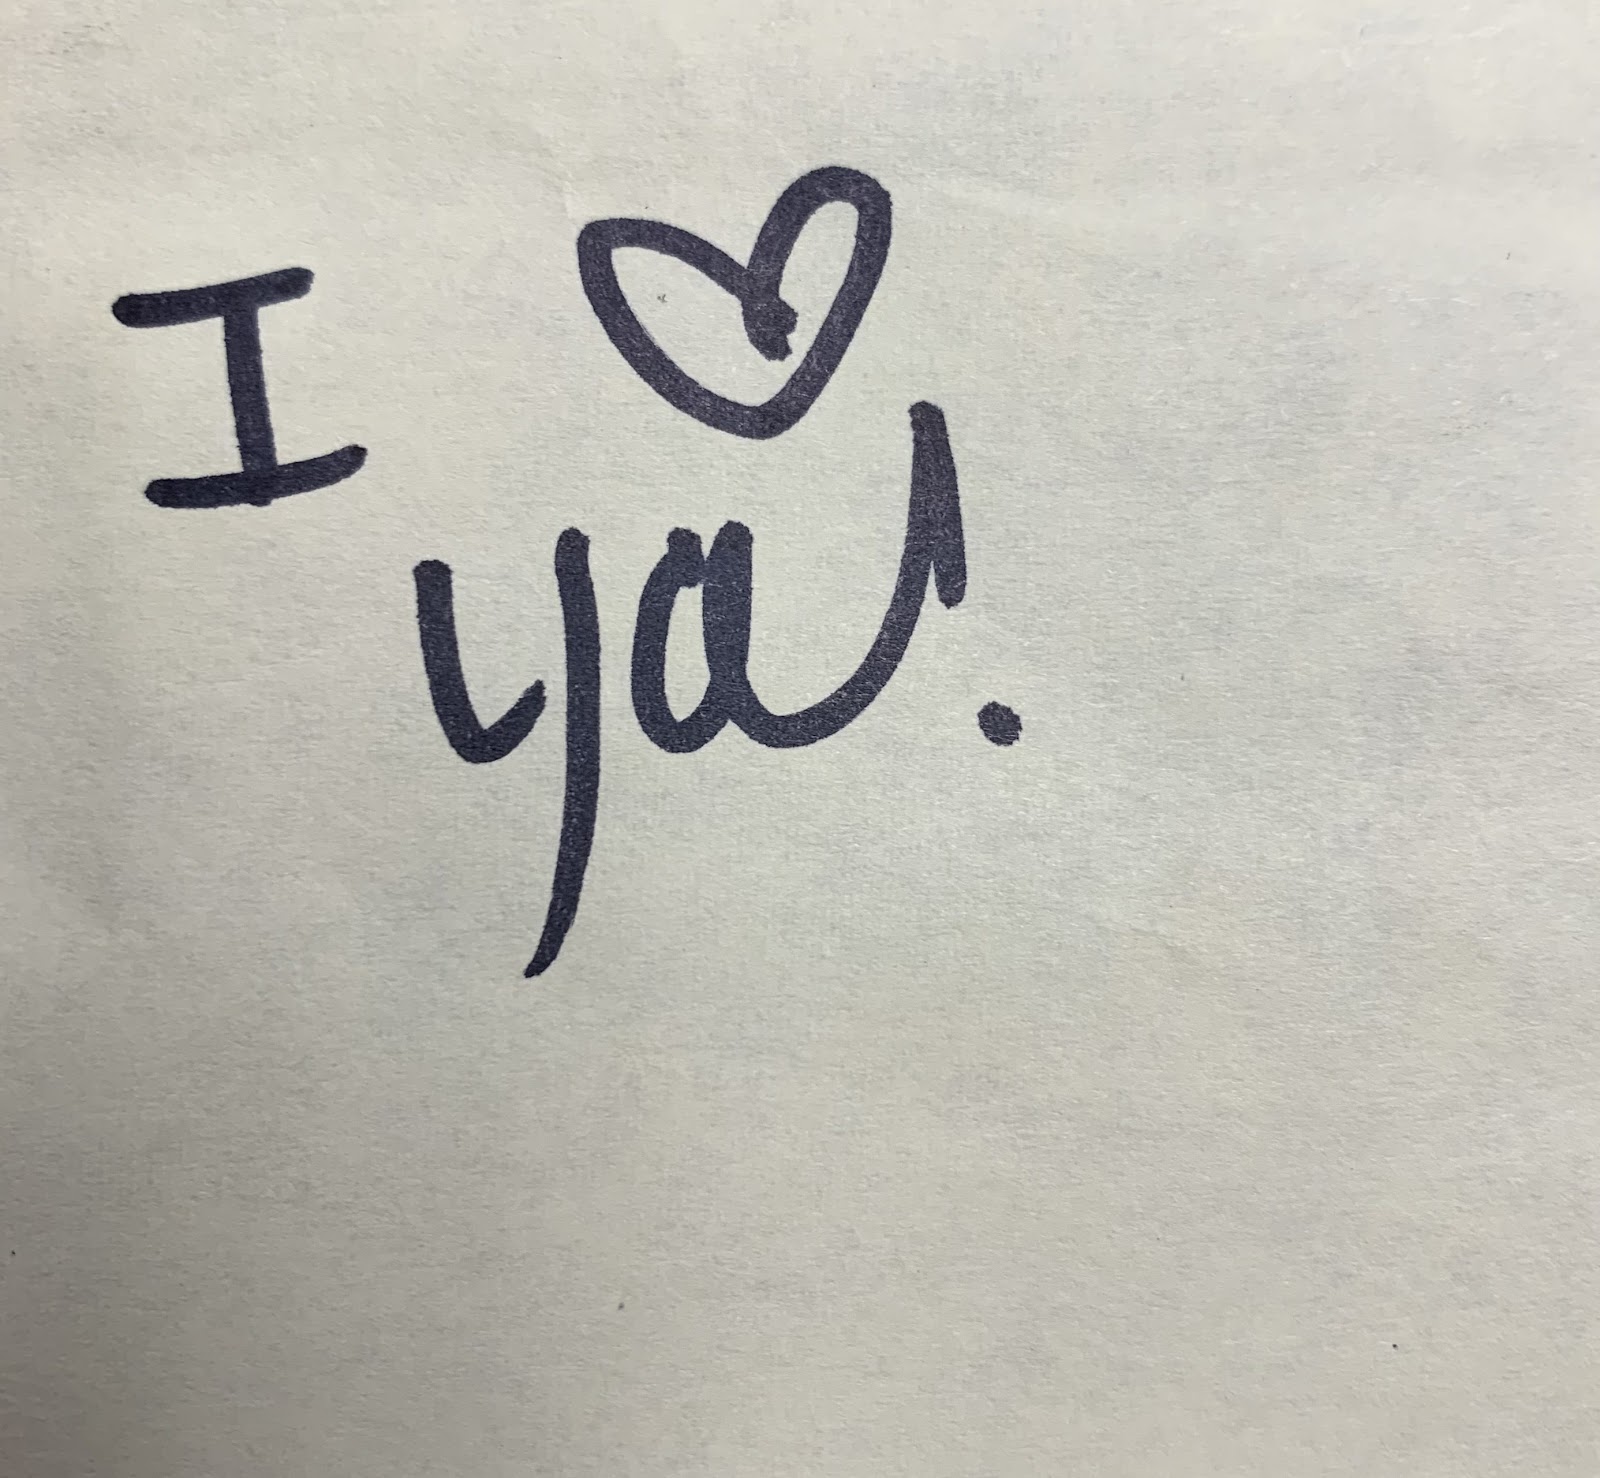 I ♡
ya!